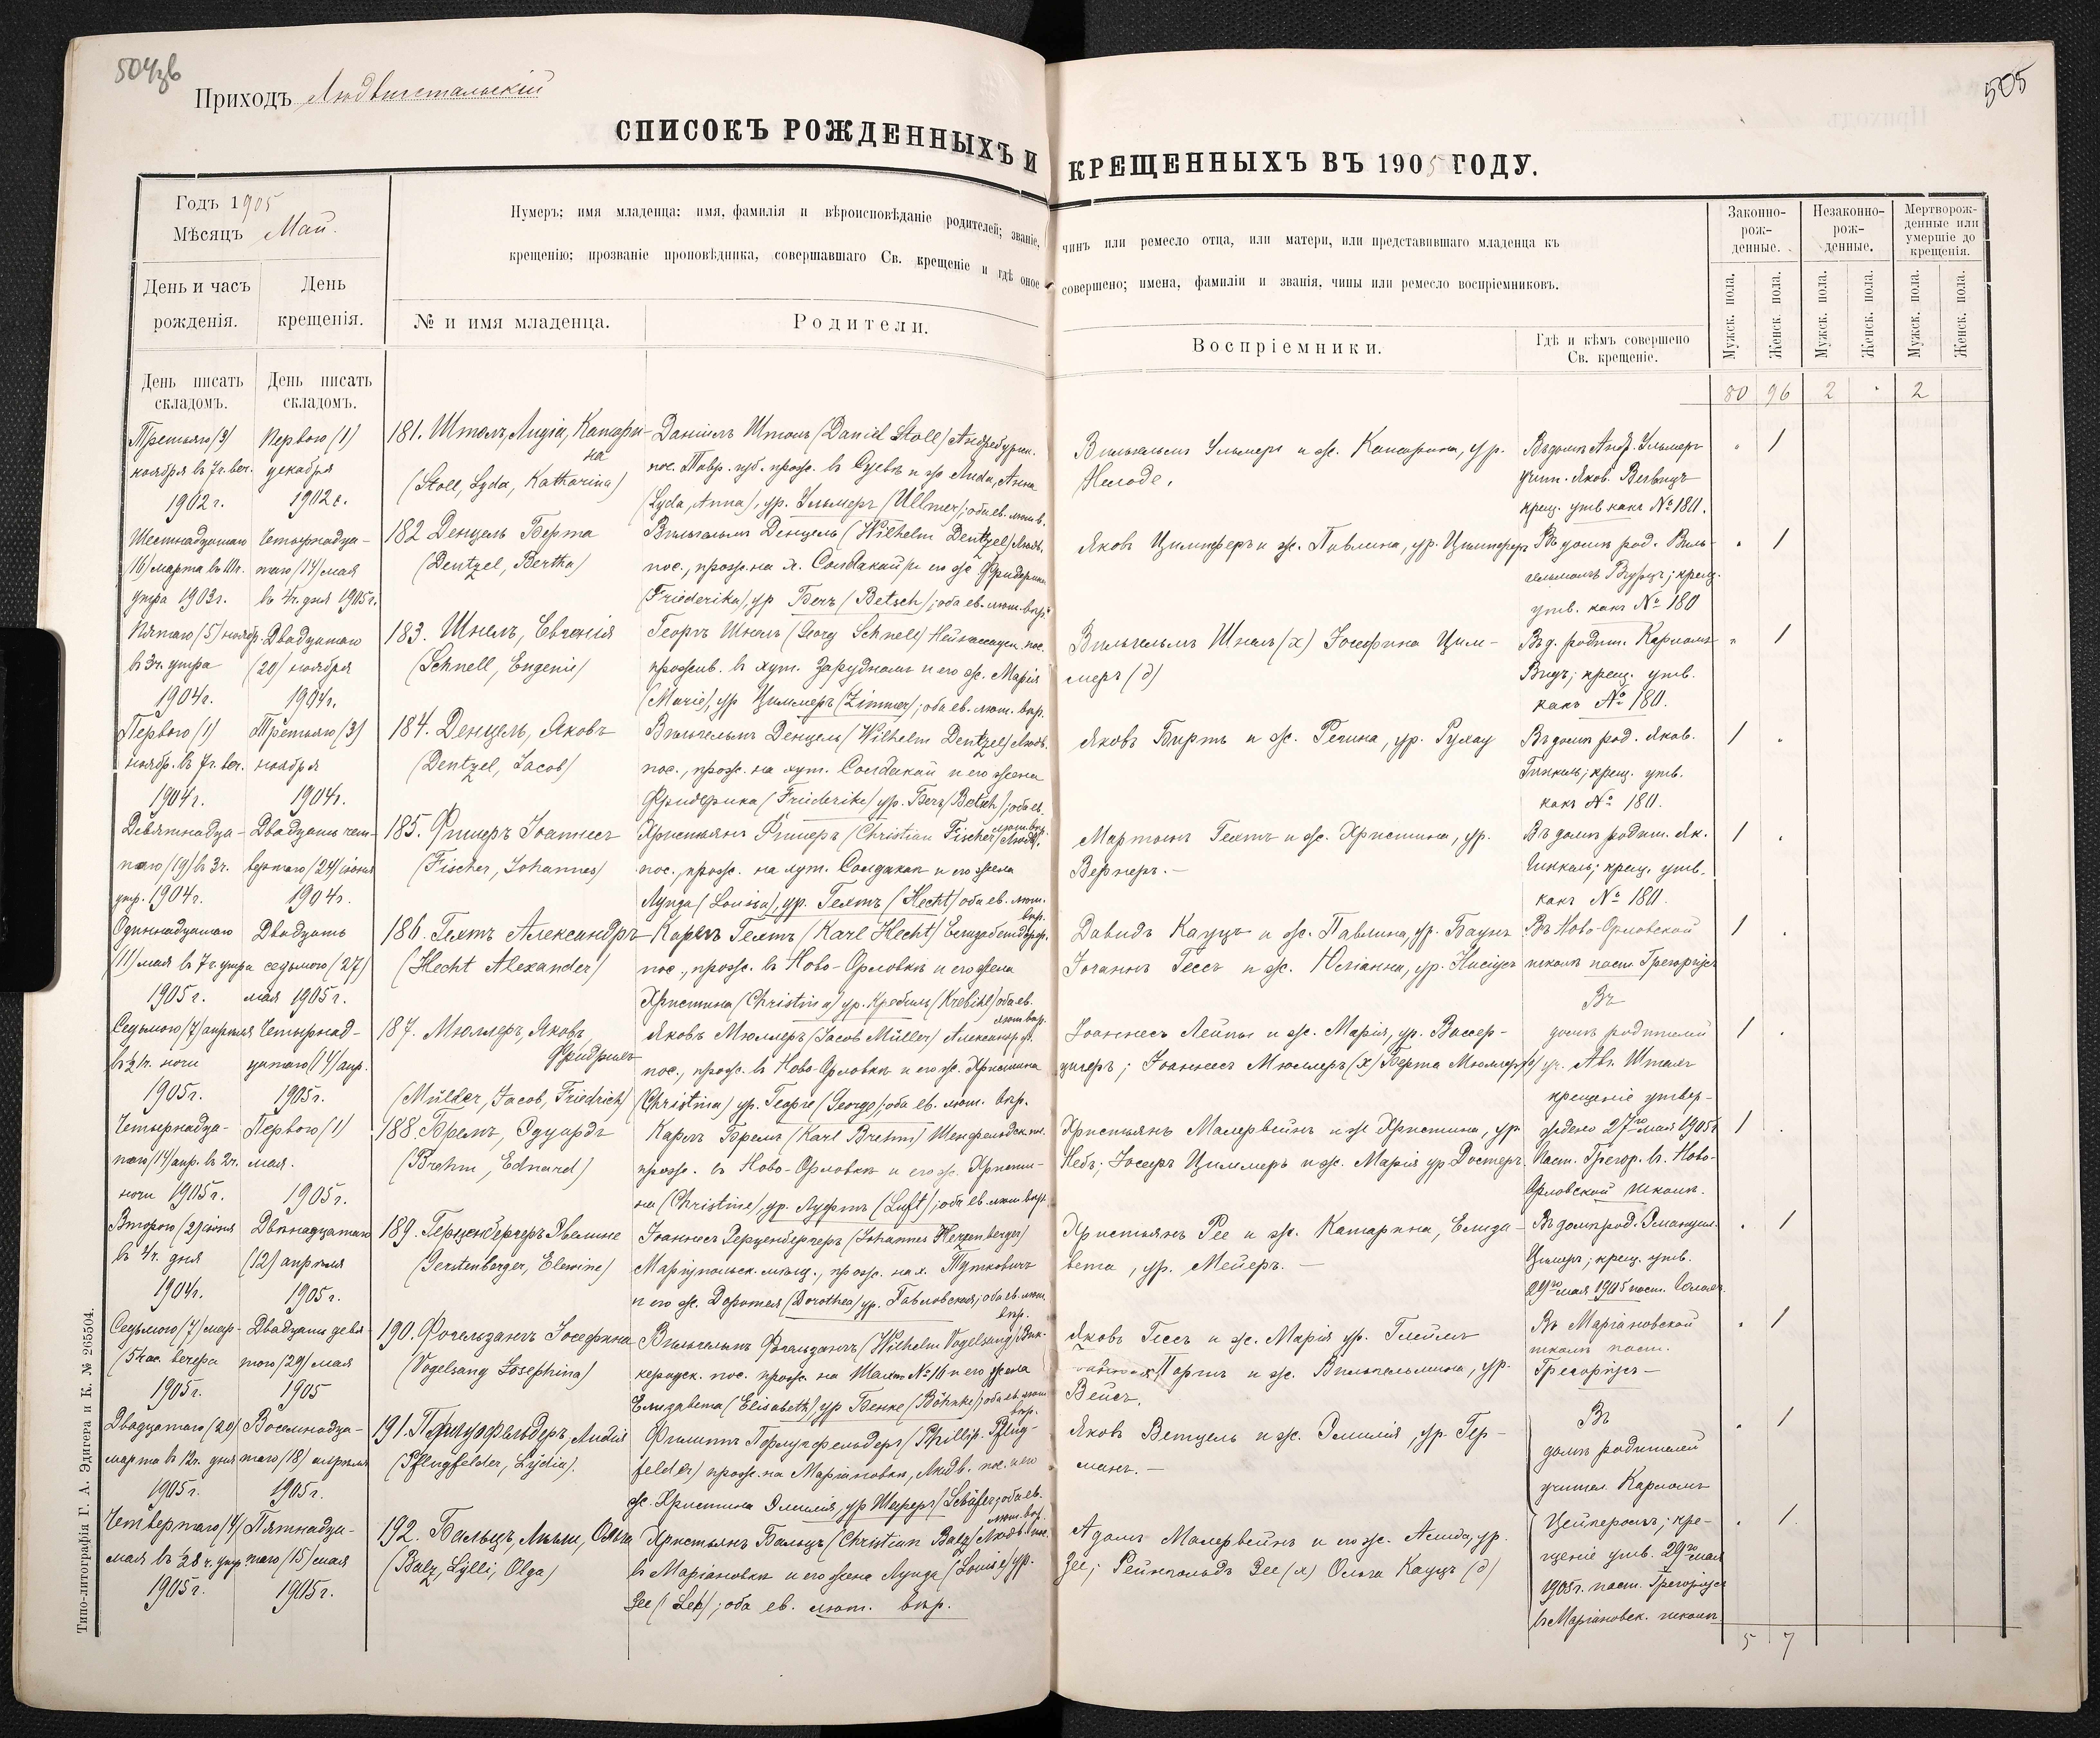 504зв
505
Приходъ Людвигстальскій
СПИСОКЪ РОЖДЕННЫХЪ И КРЕЩЕННЫХЪ ВЪ 1905 ГОДУ.
Годъ 1905
Мѣсяцъ Май.
Нумеръ; имя младенца; имя, фамилія и вѣроисповѣданіе родителей; званіе, чинъ или ремесло отца, или матери, или представившаго младенца къ
крещенію; прозваніе проповѣдника, совершавшаго Св. крещеніе и гдѣ оное совершено; имена, фамиліи и званія, чины или ремесло воспріемниковъ.
Законно-рож-денные.
Незаконно-рож-денные.
Мертворож-денные или умершіе до крещенія.
День и часъ рожденія.
День крещенія.
№ и имя младенца.
Родители.
Воспріемники.
Гдѣ и кѣмъ совершено Св. крещеніе.
Мужск. пола.
Женск. пола.
Мужск. пола.
Женск. пола.
Мужск. пола.
Женск. пола.
День писать складомъ.
День писать складомъ.
80 96 2 · 2
Третьяго (3)
ноября в 7 ч. веч.
1902 г.
Перваго (1)
декабря
1902 г.
181. Штолъ, Лидія, Катари-
на
(Stoll, Lyda, Katharina)
Даніилъ Штолъ (Daniel Stoll)
пос. Тавр. губ. прож. в и ж Лида, Анна
(Lyda, Anna), ур. Ульмеръ (Ullmer); оба ев. лют. в.
Вильгельмъ Ульмеръ и ж. Катарина, ур.
Въ домѣ Анд. Ульмеръ
учит. Яков.
крещ. утв какъ № 180.
1
Шестнадцатаго
(16) марта въ 11 ч.
утра 1903 г.
Четырнадца-
таго (14) мая
въ 4 ч. дня 1905 г.
182 Денцель Берта
(Dentzel, Bertha)
Вильгельмъ Денцель (Wilhelm Dentzel) Людв.
пос., прож. на х. Солдакай и его ж Фридерика
(Friederika), ур Бечъ (Betsch); оба ев. лют. вѣр.
Яковъ Циммеръ и ж. Павлина, ур. Циммеръ
Въ домѣ род. Виль-
гельмомъ крещ.
утв. какъ № 180
1
Пятаго (5) ноябр.
в 3 ч. утра
1904 г.
Двадцатаго
(20) ноября
1904 г.
183. Шнелъ, Евгенія
(Schnell, Eugenie)
Георгъ Шнелъ (Georg Schnell) пос.
прожив. в хут. Зарудномъ и его ж. Марія
(Marie), ур Циммеръ (Zimmer); оба ев. лют. вѣр.
Вильгельмъ Шнелъ (х) Іосефина Цим-
меръ (д)
Въ д. родит. Карломъ
крещ. утв.
какъ № 180.
1
Перваго (1)
ноябр. въ 7 ч. веч.
1904 г.
Третьяго (3)
ноября
1904 г.
184. Денцель, Яковъ
(Dentzel, Jacob)
Вильгельмъ Денцель (Wilhelm Dentzel) Людв.
пос., прож. на хут. Солдакай и его жена
Фридерика (Friederike) ур. Бечъ (Betsch); оба ев.
лют. вѣр.
Яковъ Биртъ и ж. Регина, ур. Рулау
Въ домѣ род. Яков.
крещ. утв.
какъ № 180.
1
Девятнадца-
таго (19) в 3 ч.
утр. 1904 г.
Двадцать чет-
вертаго (24) іюня
1904 г.
185. Фишеръ Іоаннесъ
(Fischer, Johannes)
Христьянъ Фишеръ (Christian Fischer) Людв.
пос., прож. на хут. Солдакай и его жена
Луиза (Louisa), ур. Гехтъ (Hecht) оба ев. лют.
вѣр.
Мартынъ Гехтъ и ж. Христина, ур.
Вернеръ. —
Въ домѣ родит. Як.
крещ. утв.
какъ № 180.
1
Одиннадцатаго
(11) мая в 7 ч. утра
1905 г.
Двадцать
седьмого (27)
мая 1905 г.
186. Гехтъ Александръ
(Hecht Alexander)
Карлъ Гехтъ (Karl Hecht) Елизабетдорф.
пос., прож. в Ново-Орловкѣ и его жена
Христина (Christina) ур. Кребиль (Krebihl) оба ев.
лют. вѣр.
Давидъ Кауцъ и ж. Павлина, ур. Баунъ
Іоганнъ Гессъ и ж. Юліанна, ур.
Въ Ново-Орловской
школѣ паст. Грегоріусъ
1
Седьмого (7) апрѣля
в ½ 1 ч. ночи
1905 г.
Четырнад-
цатаго (14) апр.
1905 г.
187. Мюллеръ, Яковъ,
Фридрихъ
(Mülder, Jacob, Friedrich)
Яковъ Мюллеръ (Jacob Müller) Александрф.
пос., прож. в Ново-Орловкѣ и его ж. Христина
(Christina) ур. Георге (George); оба ев. лют. вѣр.
Іоаннесъ Лейпы и ж. Марія, ур. Вассер-
цигеръ; Іоаннесъ Мюллеръ (х) Берта Мюллеръ (д)
Въ
домѣ родителей
уч. Авг. Шталъ
крещеніе утвер-
1
Четырнадца-
таго (14) апр. в 2 ч.
ночи 1905 г.
Перваго (1)
мая.
1905 г.
188. Бремъ, Эдуардъ
(Brehm, Eduard)
Карлъ Бремъ (Karl Brehm) Шенфельдск. пос.
прож. в Ново-Орловкѣ и его ж. Христи-
на (Christine), ур. Луфтъ (Luft); оба ев. лют. вѣр.
Христьянъ Малервейнъ и ж Христина, ур.
Небъ; Іосифъ Циммеръ и ж. Марія ур Достеръ
ждено 27го мая 1905 г
Паст. Грегор. в. Ново-
Орловской школѣ.
1
Второго (2) іюня
в 4 ч. дня
1904 г.
Двѣнадцатаго
(12) апрѣля
1905 г.
189. Герценбергеръ Эвелине
(Gerstenberger, Elewine)
Іоаннесъ Герценбергеръ (Johannes Herzenberger)
Маріупольск. мѣщ., прож. на х. Путковичъ
и его ж. Доротея (Dorothea) ур. Гавловская; оба ев. лют.
вѣр.
Христьянъ Рее и ж. Катарина, Елиза-
вета, ур. Мейеръ. —
Въ домѣ род. Эмануил.
Цимеръ; крещ. утв.
29го мая 1905 паст.
1
Седьмого (7) мар-
(5 час. вечера
1905 г.
Двадцать девя-
таго (29) мая
1905
190. Фогельзангъ Іосефина
(Vogelsang Josephina)
Вильгельмъ Фогельзангъ (Wilhelm Vogelsang)
пос. прож. на Шахт № 16 и его жена
Елизавета (Elisabeth), ур Бенке (Böhnke); оба ев. лют.
вѣр.
Яковъ Гессъ и ж. Марія ур.
и ж. Вильгельмина, ур.
Вейсъ.
Въ Маріановской
школѣ паст.
Грегоріусъ —
1
Двадцатаго (20)
марта в 12 ч. дня
1905 г.
Восемнадца-
таго (18) апрѣля
1905 г.
191. Пфлугфельдеръ, Лидія
(Pflugfelder, Lydia).
Филиппъ Пфлугфельдеръ (Phillip. Pflug-
felder) прож. на Маріановкѣ, Людв. пос. и его
ж. Христина Эмилія, ур Шеферъ (Schäfer; оба ев.
лют. вѣр.
Яковъ Ветцель и ж. Эмилія, ур. Гер-
манъ. —
Въ
домѣ родителей
учител. Карломъ
1
Четвертаго (4)
мая въ ½ 8 ч. утр.
1905 г.
Пятнадца-
таго (15) мая
1905 г.
192. Бальцъ, Лилли, Ольга
(Balz, Lylli, Olga)
Христьянъ Бальцъ (Christian Balz) Людв. пос.
в Маріановкѣ и его жена Луиза (Louise) ур.
Зее; оба ев. лют. вѣр.
Адамъ Малервейнъ и его ж. ур.
Зее; Рейнгольдъ Зее (х) Ольга Кауцъ (д)
Цейперомъ; кре-
щеніе утв. 29го мая
1905 г. паст. Грегоріусъ
в Маріановск. школѣ
1
5 7
Типо-литографія Г. А. Эдигера и К. № 265504.